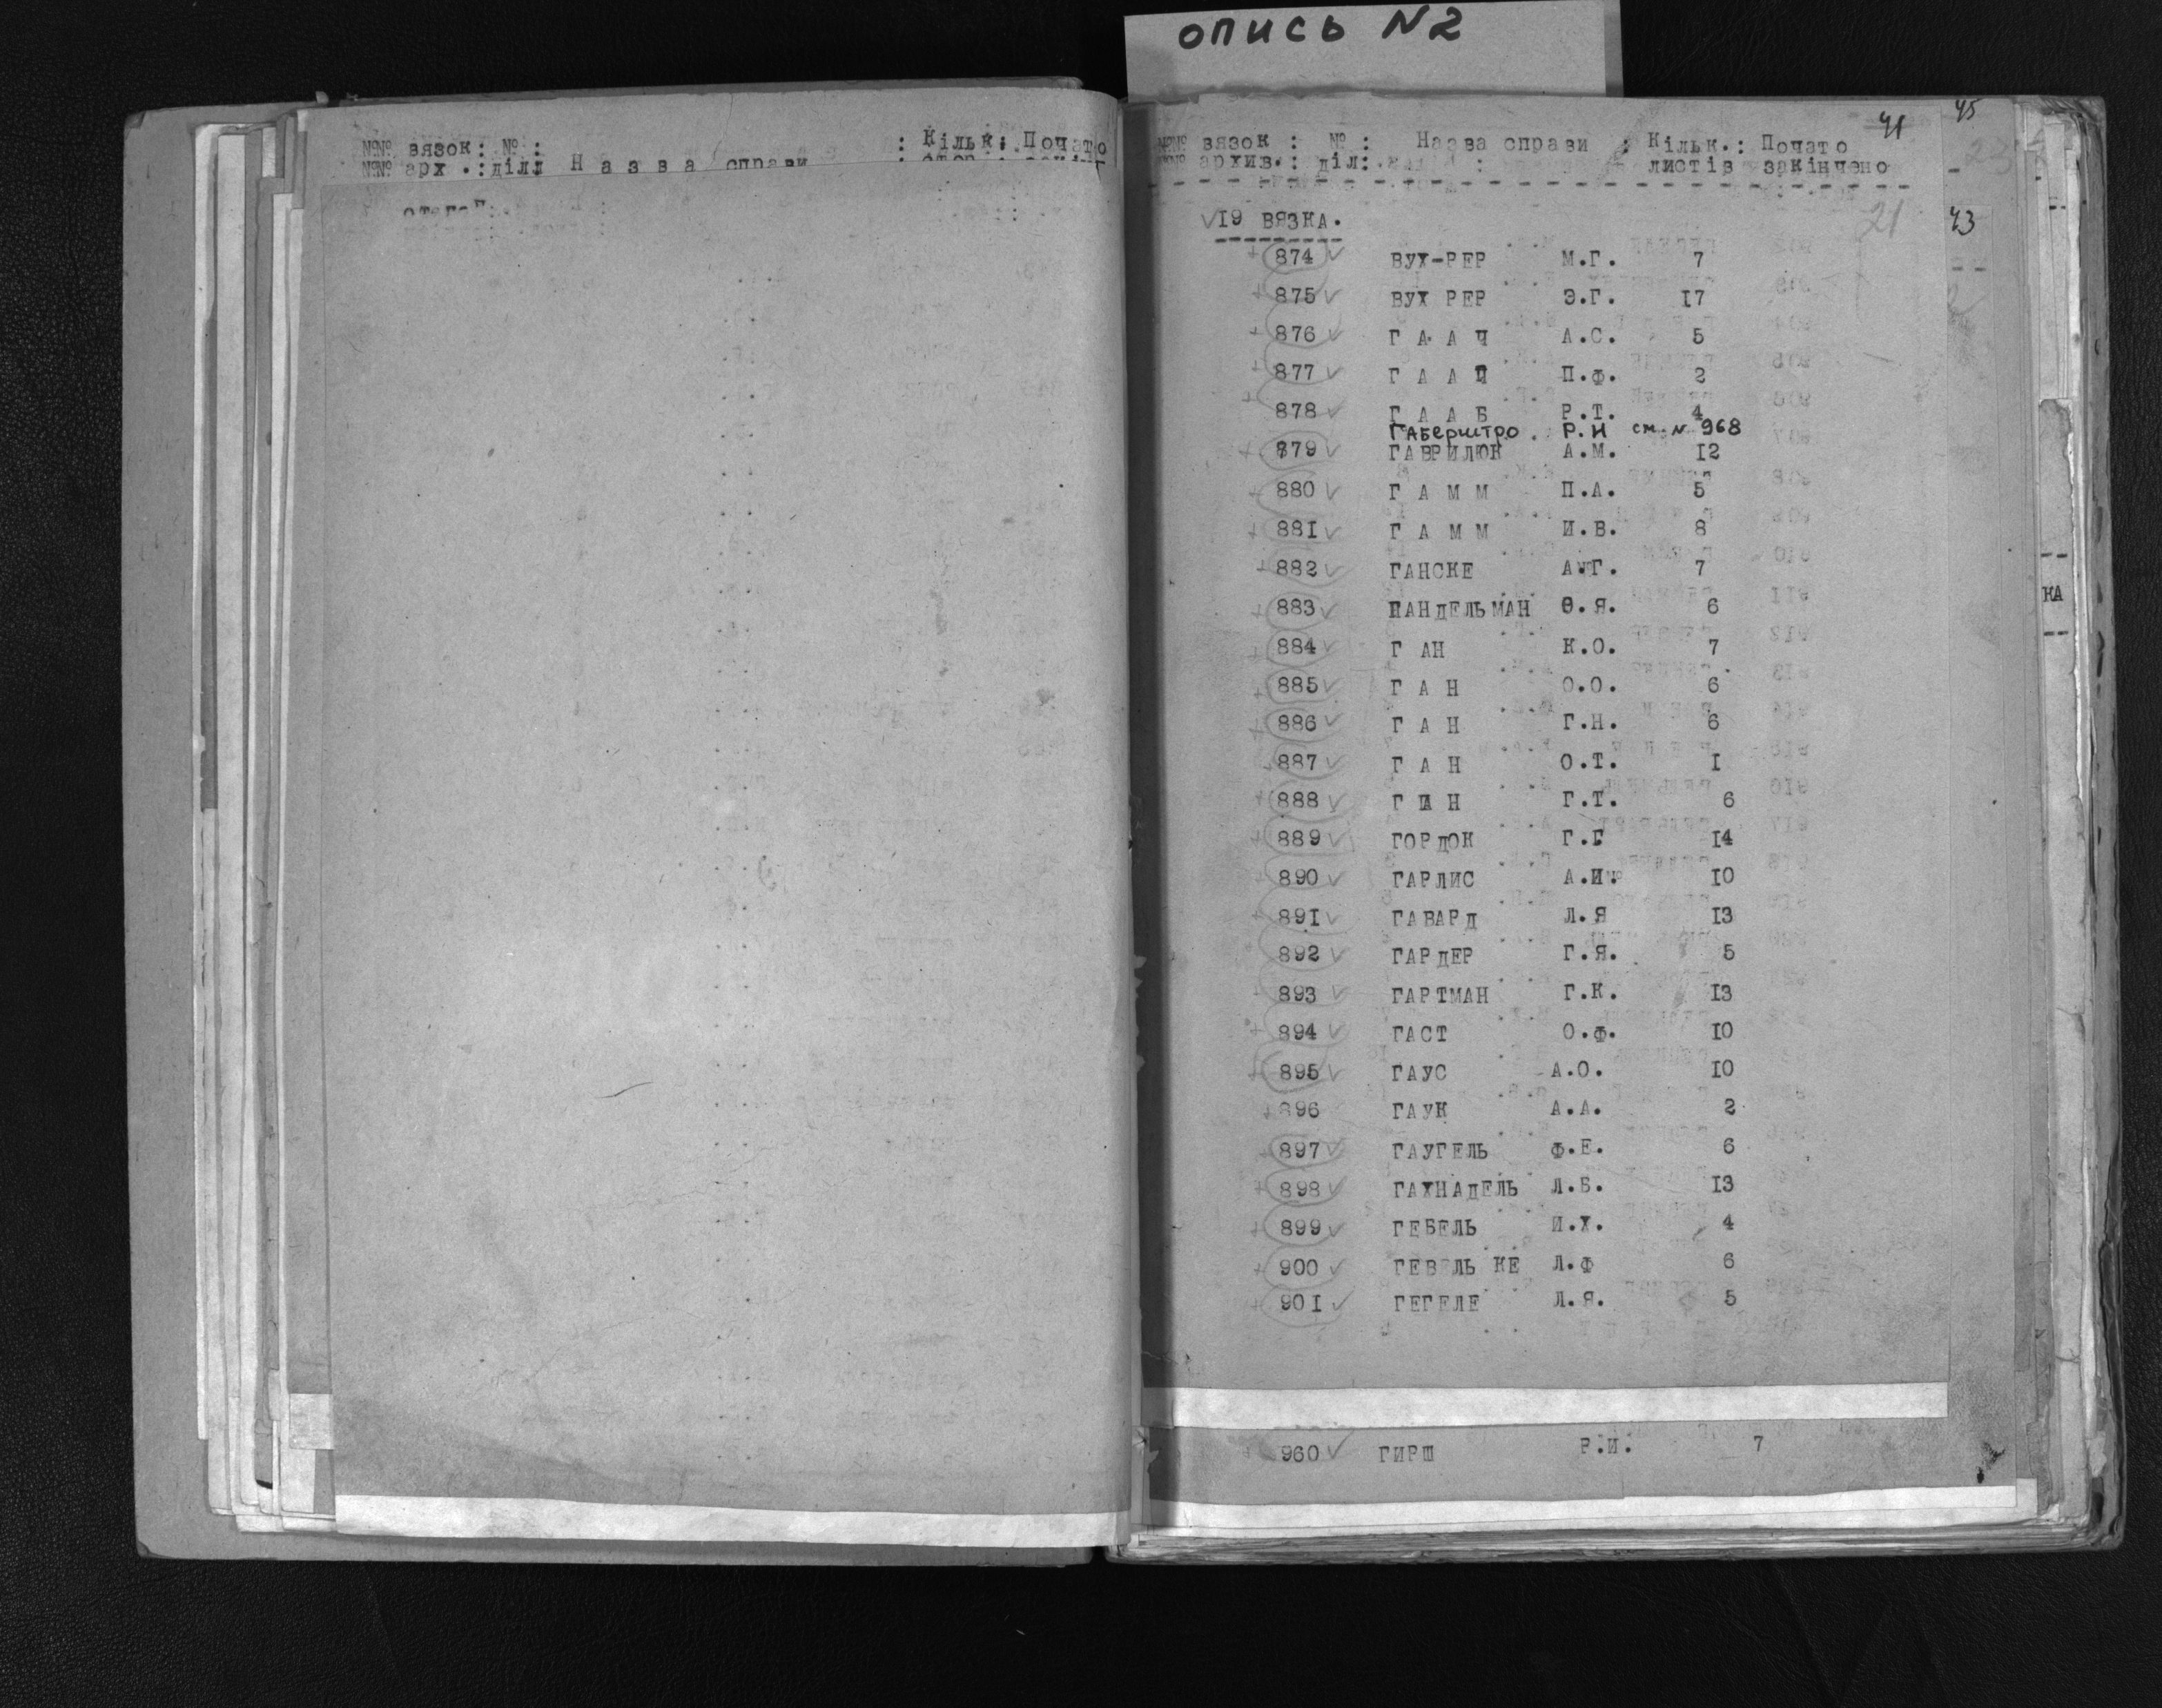 опись N2
№№ вязок: № : : Кільк: Почато
№№ арх .:діл Назва справи
41
45
№№ вязок : № : Назва справи : Кільк.: Почато
№№ архив.: діл: листів закінчено
21
43
19 ВЯЗКА.
874 ВУХ-РЕР М.Г. 7
875 ВУХ РЕР Э.Г. 17
876 ГААЧ А.С. 5
877 П.Ф. 2
878 ГААБ Р.Т. 4
Габерштро Р.И см. N 968
879 ГАВРИЛЮК А.М. 12
880 ГАММ П.А. 5
881 ГАММ И.В. 8
882 ГАНСКЕ А.Г. 7
883 ГАНДЕЛЬМАН Ө.Я. 6
884 ГАН К.О. 7
885 ГАН О.О. 6
886 ГАН Г.Н. 6
887 ГАН О.Т. 1
888 ГАН Г.Т. 6
889 ГОРДОК Г.Г 14
890 ГАРЛИС А.И. 10
891 ГАВАРД Л.Я 13
892 ГАРДЕР Г.Я. 5
893 ГАРТМАН Г.К. 13
894 ГАСТ О.Ф. 10
895 ГАУС А.О. 10
896 ГАУК А.А. 2
897 ГАУГЕЛЬ Ф.Е. 6
898 ГАХНАДЕЛЬ Л.Б. 13
899 ГЕБЕЛЬ И.Х. 4
900 ГЕВЕЛЬ КЕ Л.Ф 6
901 ГЕГЕЛЕ Л.Я. 5
КА
960 ГИРШ Р.И. 7